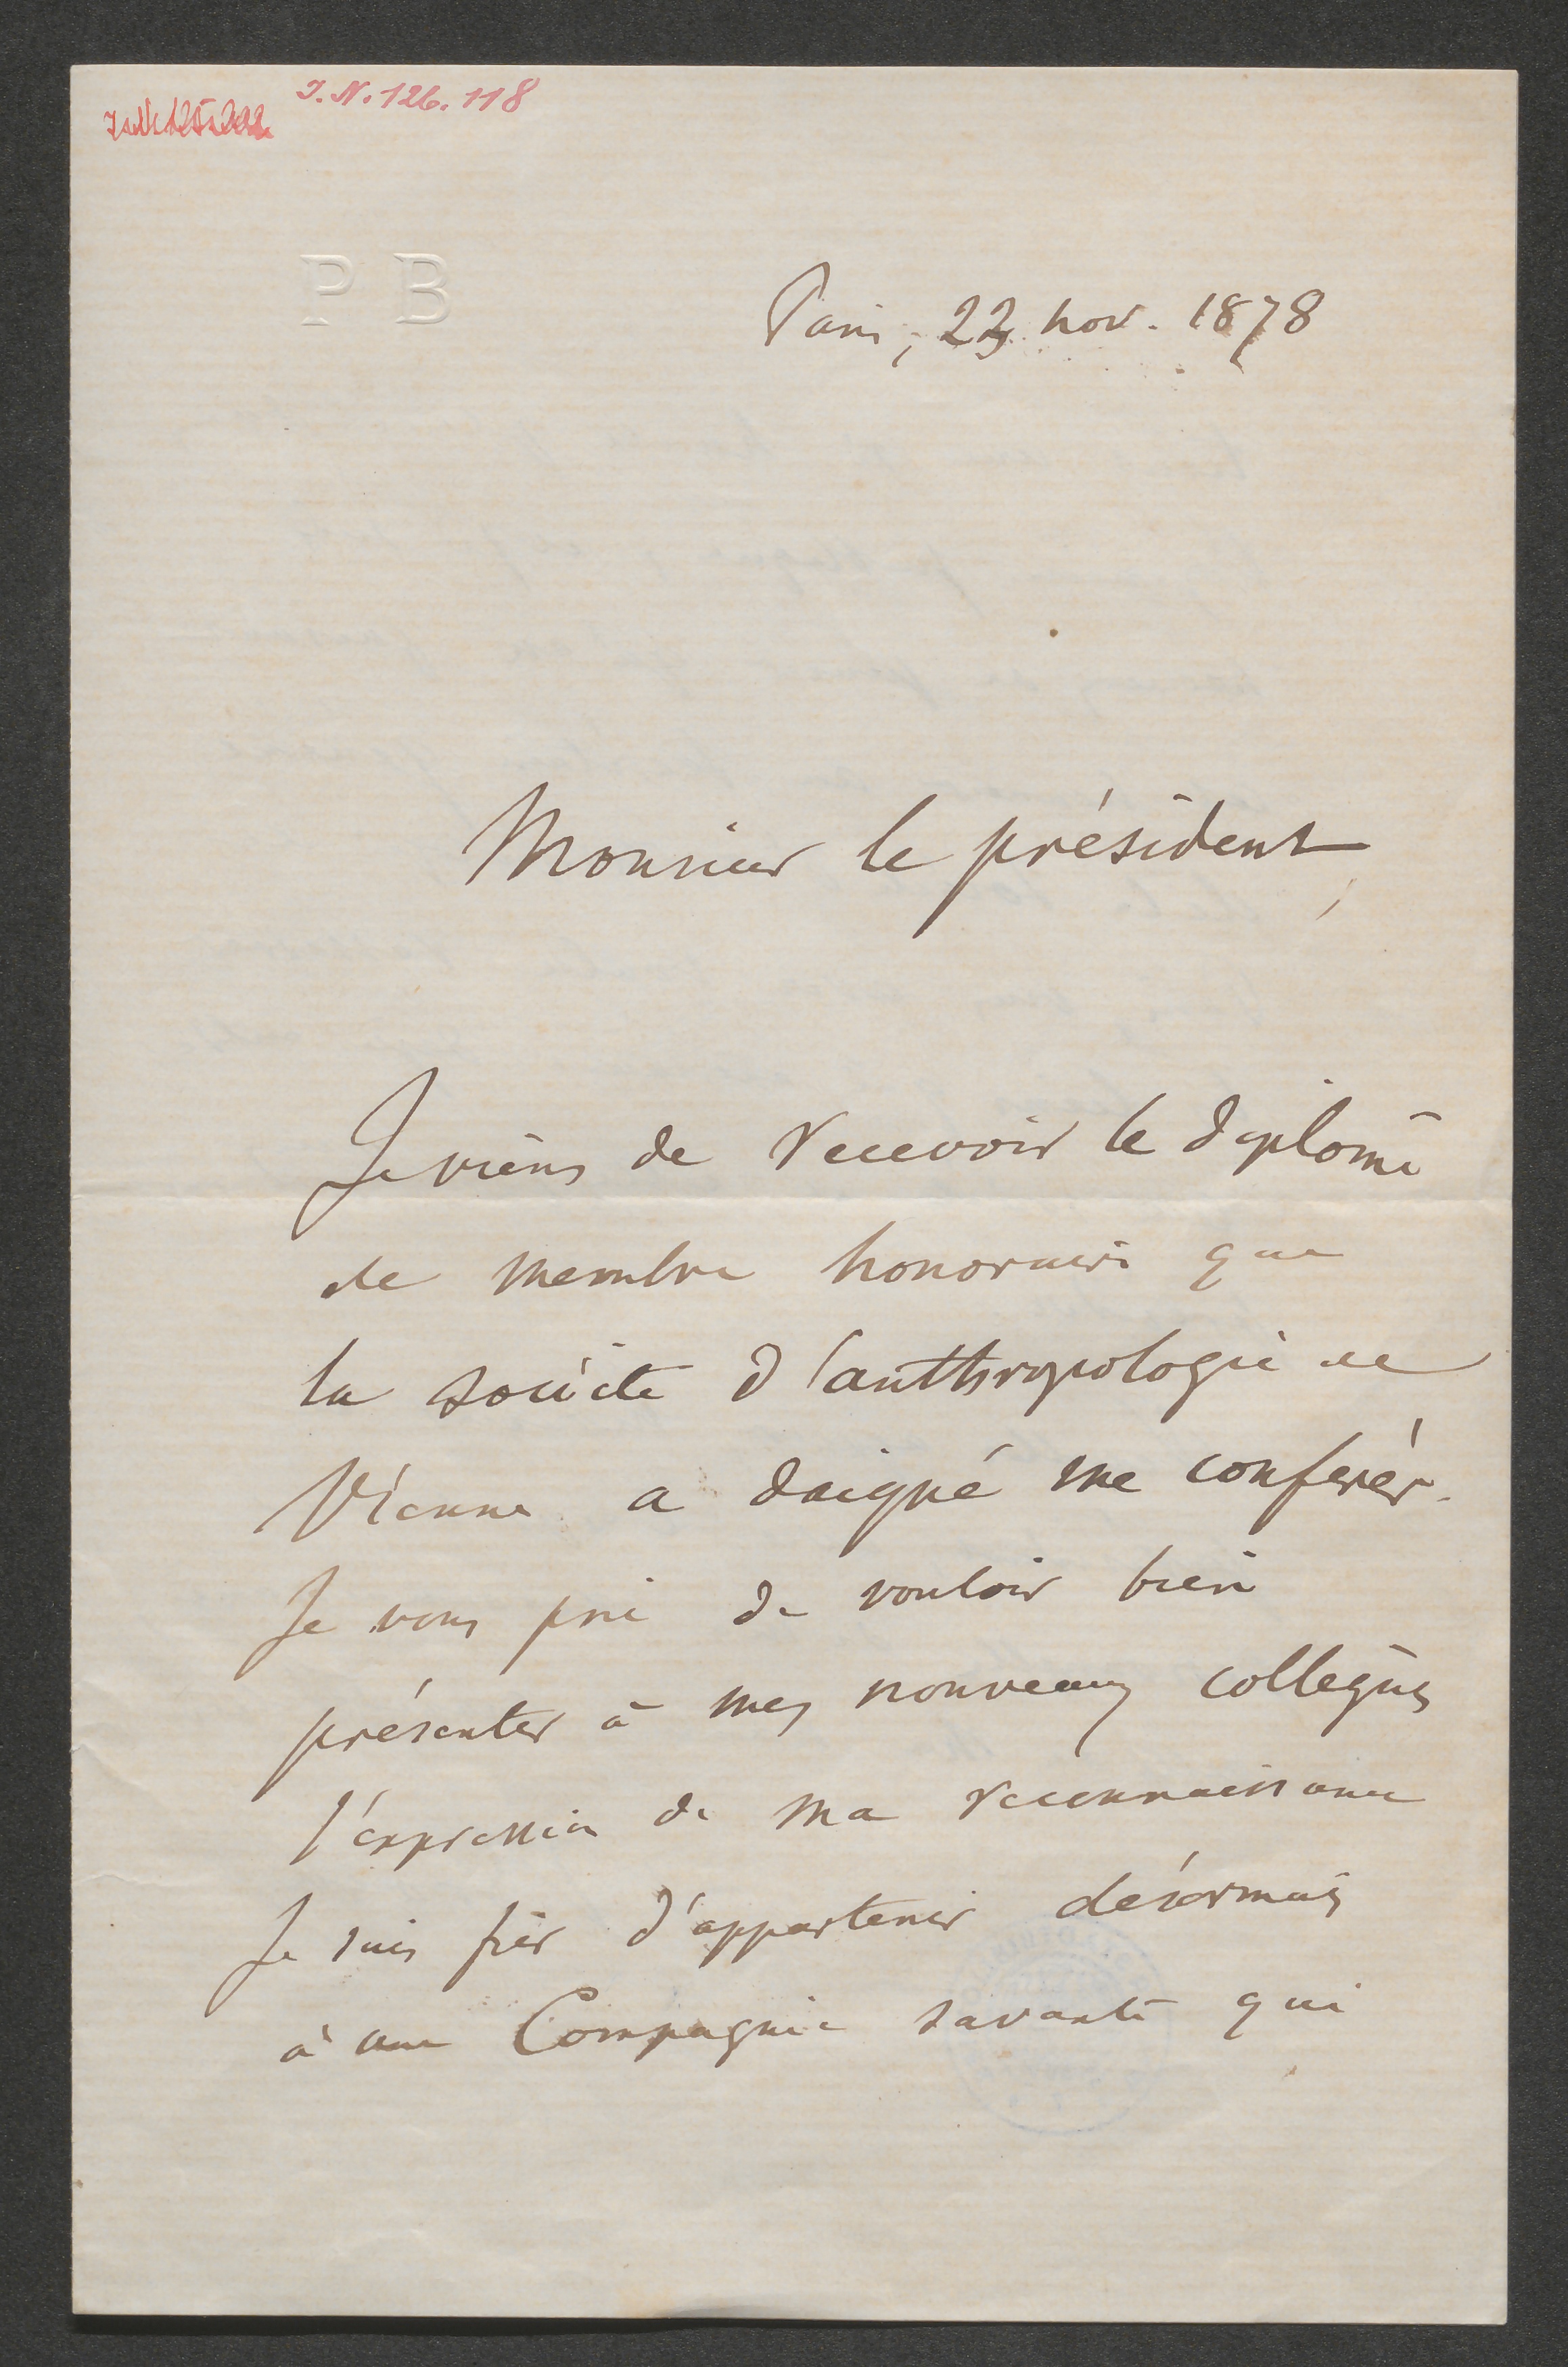 I. N. 126. 118
P B
Paris, 23 nov. 1878
Monsieur le président,
Je viens de recevoir le diplome
de membre honoraire que
la société d'anthropologie de
Vienne a daigné me conférer.
Je vous prie de vouloir bien
présenter à mes nouveaux collègues
l'expression de ma reconnaissance
Je suis fier d'appartenir désormais
à une Compagnie savante qui